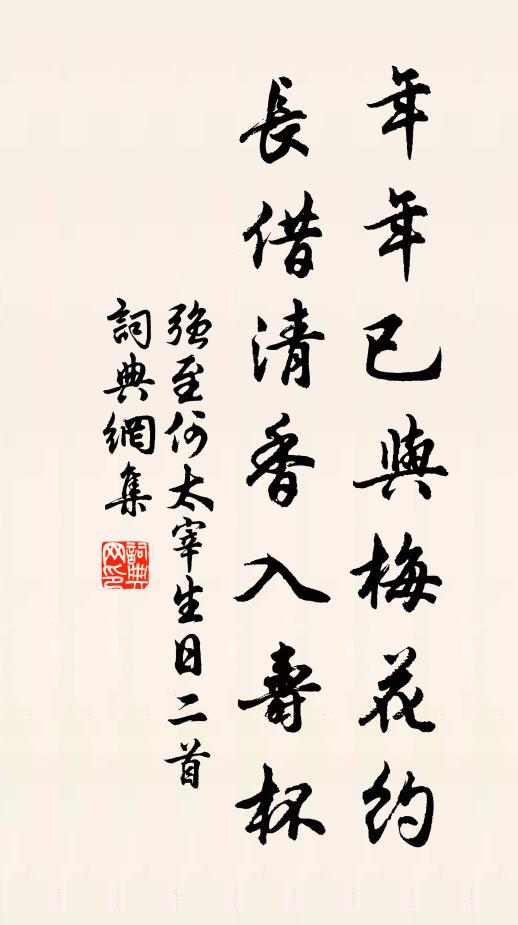 年年已與梅花約
長借清香入壽杯
強至何太宰生日二首
詞典網集
詞典網印